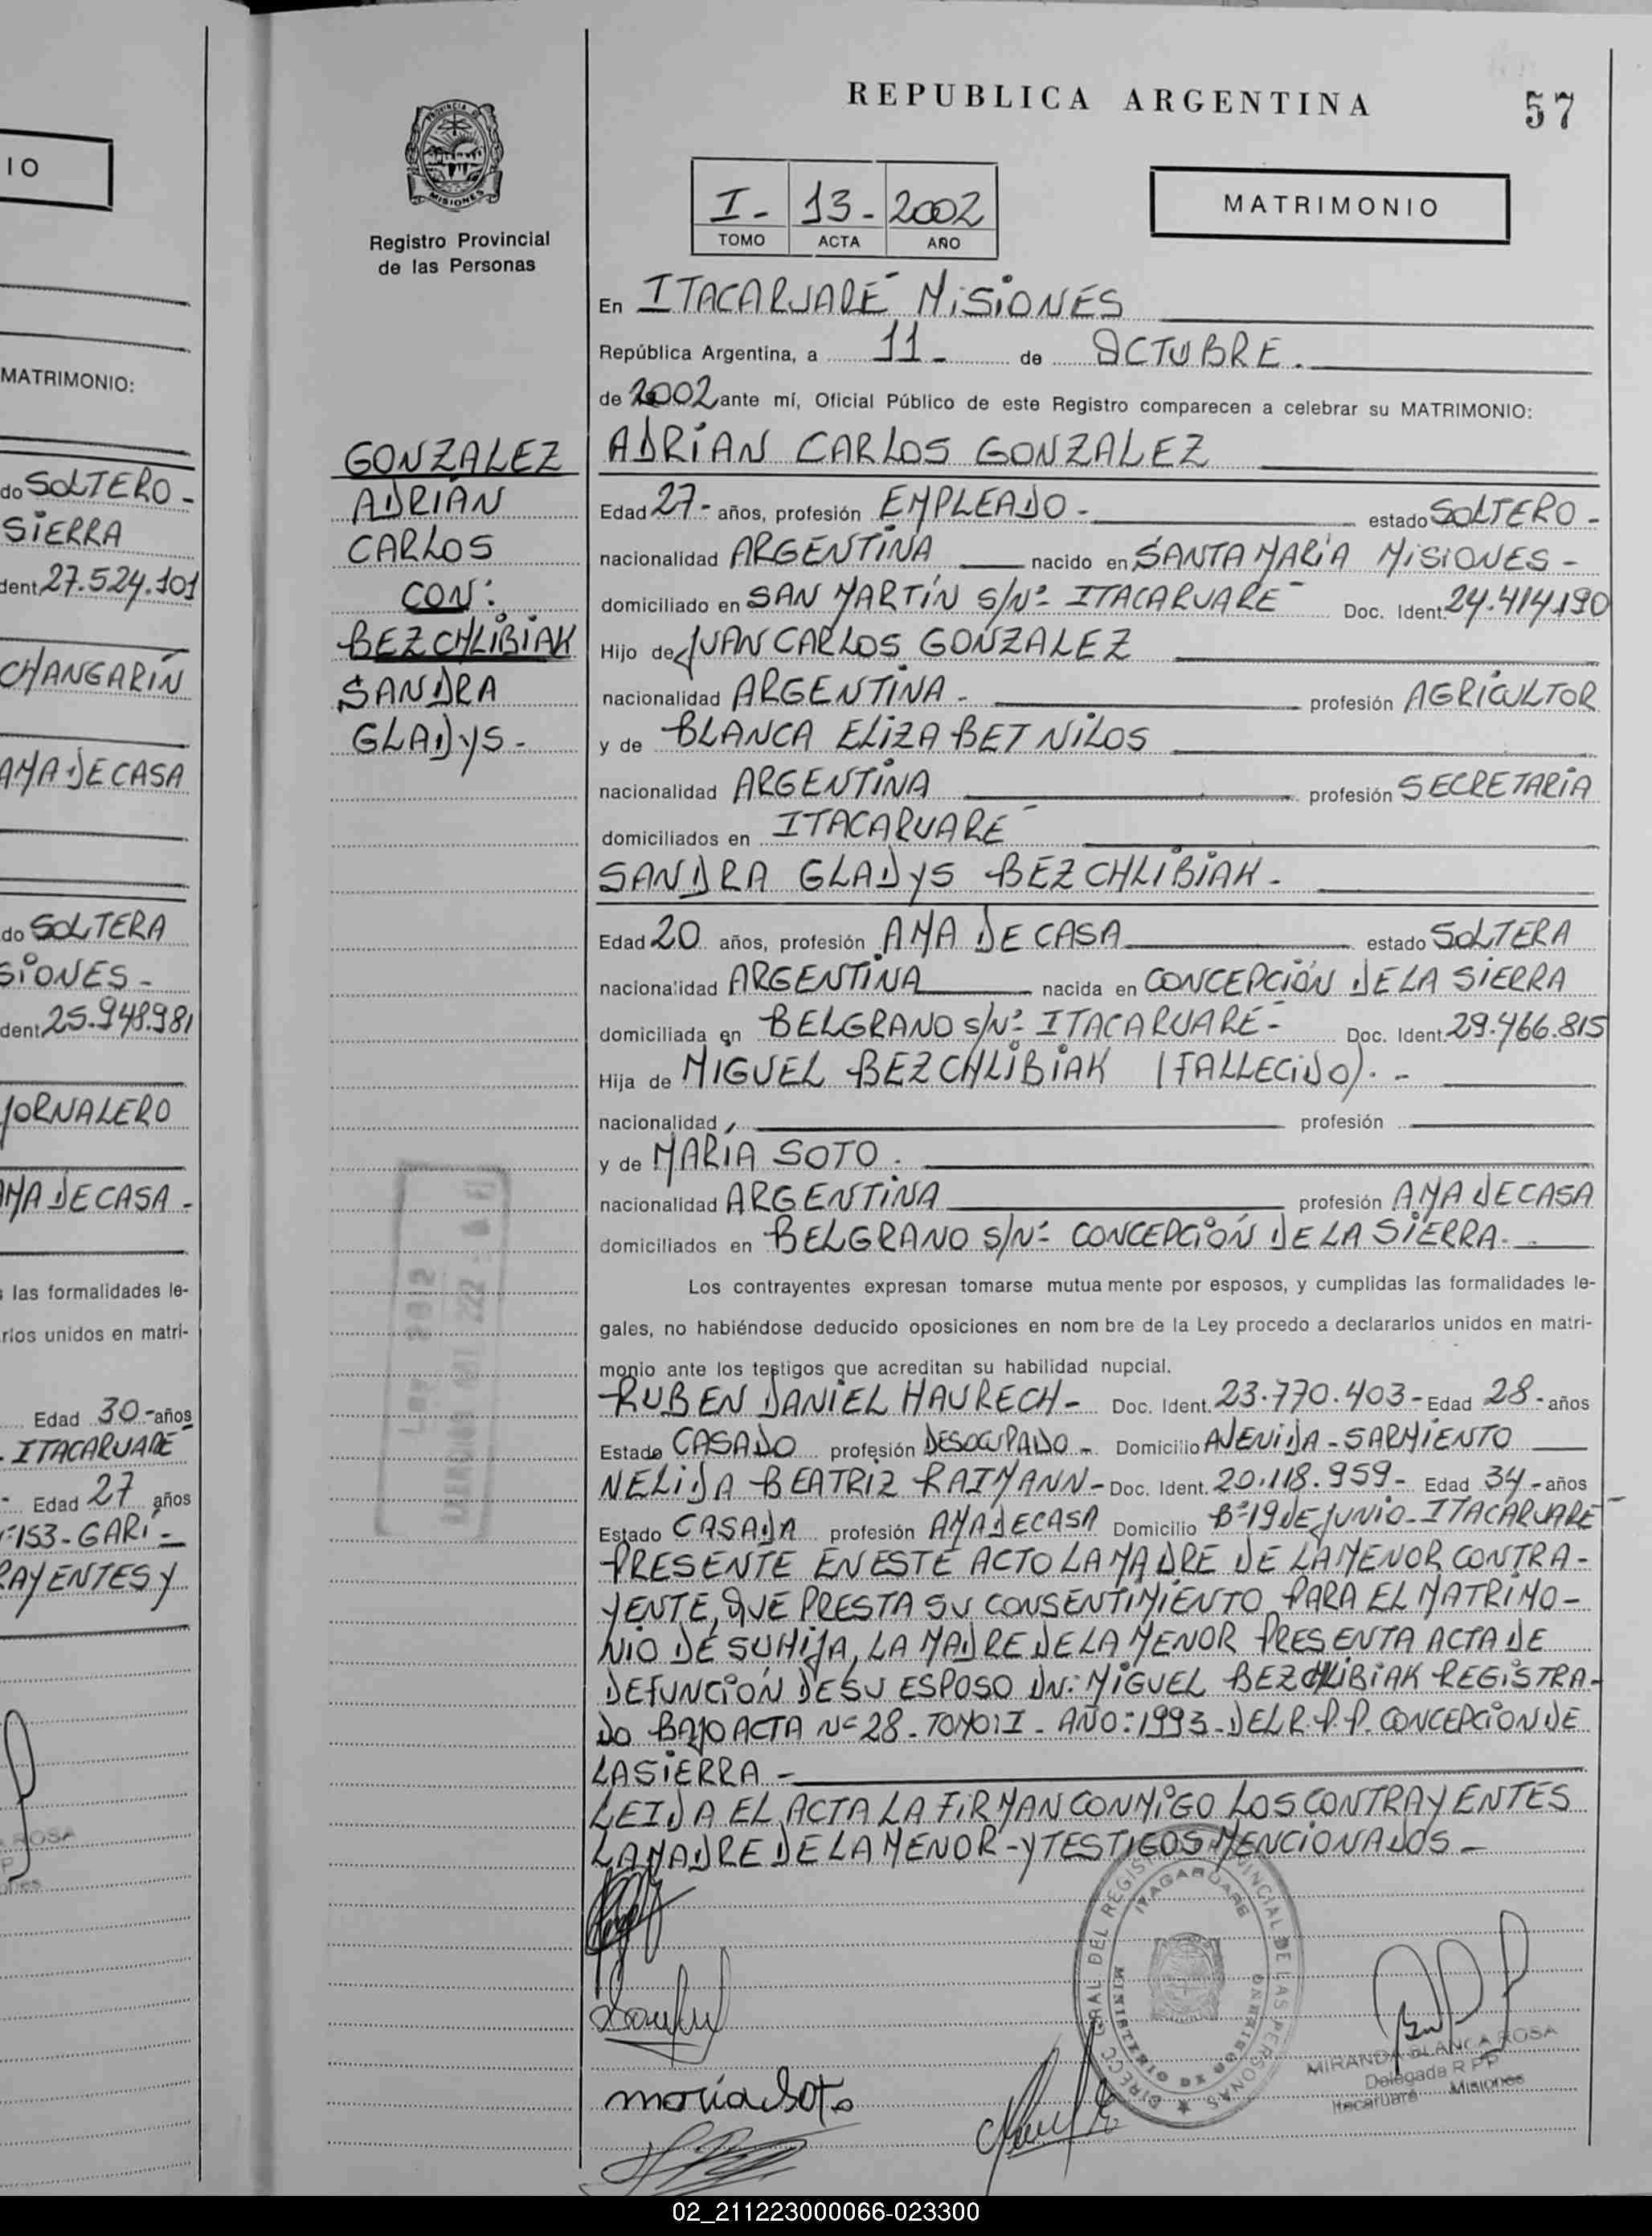 IO
MATRIMONIO:
do SOLTERO -
SIERRA
dent. 27.524.101
CHANGARÍN
AMA DE CASA
do SOLTERA
SIONES -
dent. 25.948.981
JORNALERO
AMA DE CASA -
las formalidades le-
rlos unidos en matri-
Edad 30.- años
ITACARUARE
Edad 27 años
153 - GARI -
RAYENTES Y
PROVINCIA DE
MISIONES
Registro Provincial
de las Personas
GONZALEZ
ADRIÁN
CARLOS
CON:
BEZCHLIBIAK
SANDRA
GLADYS -
REPUBLICA ARGENTINA
57
I - 13 - 2002
TOMO ACTA AÑO
MATRIMONIO
En ITACARUARE MISIONES
República Argentina, a 11 - de OCTUBRE.
de 2002 ante mí, Oficial Público de este Registro comparecen a celebrar su MATRIMONIO:
ADRIÁN CARLOS GONZALEZ
Edad 27 - años, profesión EMPLEADO - estado SOLTERO -
nacionalidad ARGENTINA nacido en SANTA MARÍA MISIONES -
domiciliado en SAN MARTÍN S/Nº ITACARUARE Doc. Ident. 24.414.190
Hijo de JUAN CARLOS GONZALEZ
nacionalidad ARGENTINA - profesión AGRICULTOR
y de BLANCA ELIZABET NILOS
nacionalidad ARGENTINA profesión SECRETARIA
domiciliados en ITACARUARE
SANDRA GLADYS BEZCHLIBIAK -
Edad 20 años, profesión AMA DE CASA estado SOLTERA
nacionalidad ARGENTINA nacida en CONCEPCIÓN DE LA SIERRA
domiciliada en BELGRANO S/Nº ITACARUARE - Doc. Ident. 29.466.815
Hija de MIGUEL BEZCHLIBIAK (FALLECIDO). -
nacionalidad profesión
y de MARÍA SOTO.
nacionalidad ARGENTINA profesión AMA DE CASA
domiciliados en BELGRANO S/Nº CONCEPCIÓN DE LA SIERRA.
Los contrayentes expresan tomarse mutua mente por esposos, y cumplidas las formalidades le-
gales, no habiéndose deducido oposiciones en nom bre de la Ley procedo a declararlos unidos en matri-
monio ante los testigos que acreditan su habilidad nupcial.
RUBEN DANIEL HAURECH - Doc. Ident. 23.770.403 - Edad 28 - años
Estado CASADO profesión DESOCUPADO - Domicilio AVENIDA - SARMIENTO
NELIDA BEATRIZ RAIMANN - Doc. Ident. 20.118.959 - Edad 34 - años
Estado CASADA profesión AMA DE CASA Domicilio Bº 19 DE JUNIO - ITACARUARE
PRESENTE EN ESTE ACTO LA MADRE DE LA MENOR CONTRA-
YENTE, QUE PRESTA SU CONSENTIMIENTO PARA EL MATRIMO-
NIO DE SU HIJA, LA MADRE DE LA MENOR PRESENTA ACTA DE
DEFUNCIÓN DE SU ESPOSO DN: MIGUEL BEZCHLIBIAK REGISTRA-
DO BAJO ACTA Nº 28 - TOMO: I - AÑO: 1993 - DEL R.P.P. CONCEPCION DE
LA SIERRA -
LEIDA EL ACTA LA FIRMAN CONMIGO LOS CONTRAYENTES
LA MADRE DE LA MENOR - Y TESTIGOS MENCIONADOS -
ITACARUARE
MINISTERIO DE GOBIERNO
maria Soto
MIRANDA BLANCA ROSA
Delegada R PP
Itacaruaré Misiones
02_211223000066-023300